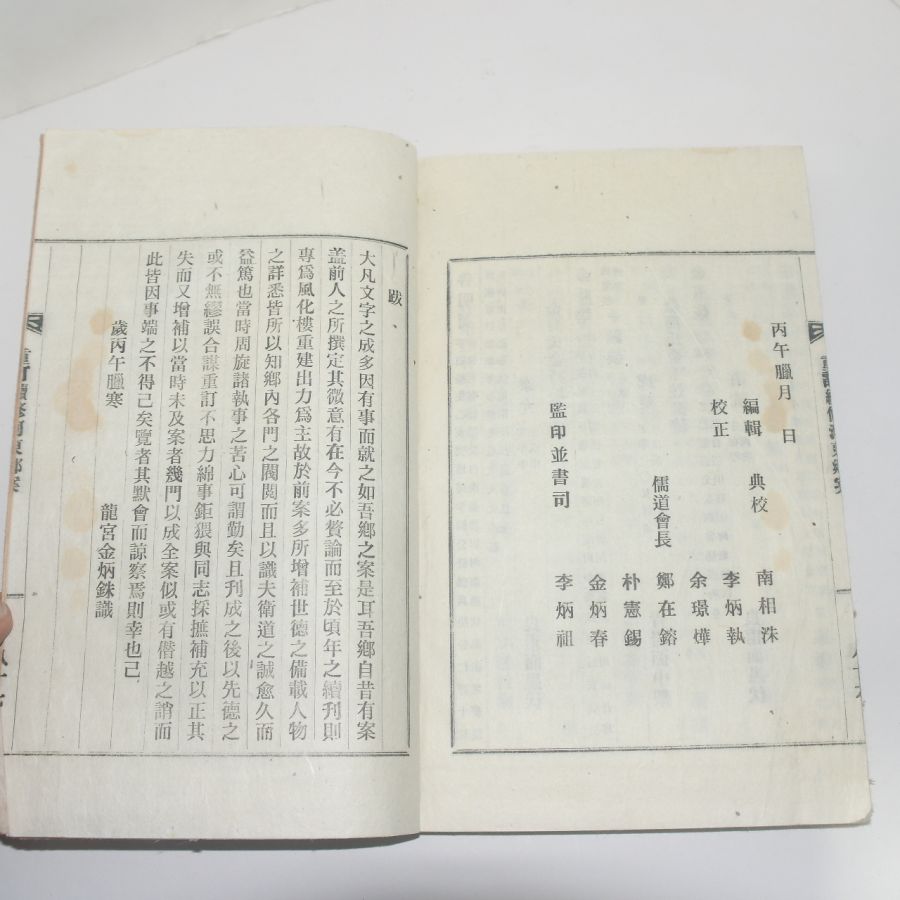 丙午臘月　日
編輯　典校　南相洙
校正　李炳執
余璟燁
儒道會長　鄭在鎔
朴憲錫
金炳春
監印並書司　李炳祖
跋
大凡文字之成多因有事而就之如吾鄉之案是耳吾鄉自昔有案
盖前人之所撰定其微意有在今不必贅論而至於頃年之續刊則
專爲風化樓重建出力爲主故於前案多所增補世德之備載人物
之詳悉皆所以知鄉內各門之閥閱而且以識夫衛道之誠愈久而
益篤也當時周旋諸執事之苦心可謂勤矣且刋成之後以先德之
或不無繆誤合謀重訂不思力綿事鉅猥與同志採摭補充以正其
失而又增補以當時未及案者幾門以成全案似或有僭越之誚而
此皆因事端之不得己矣覽者其默會而諒察焉則幸也己
歲丙午臘寒
龍宮金炳銖識